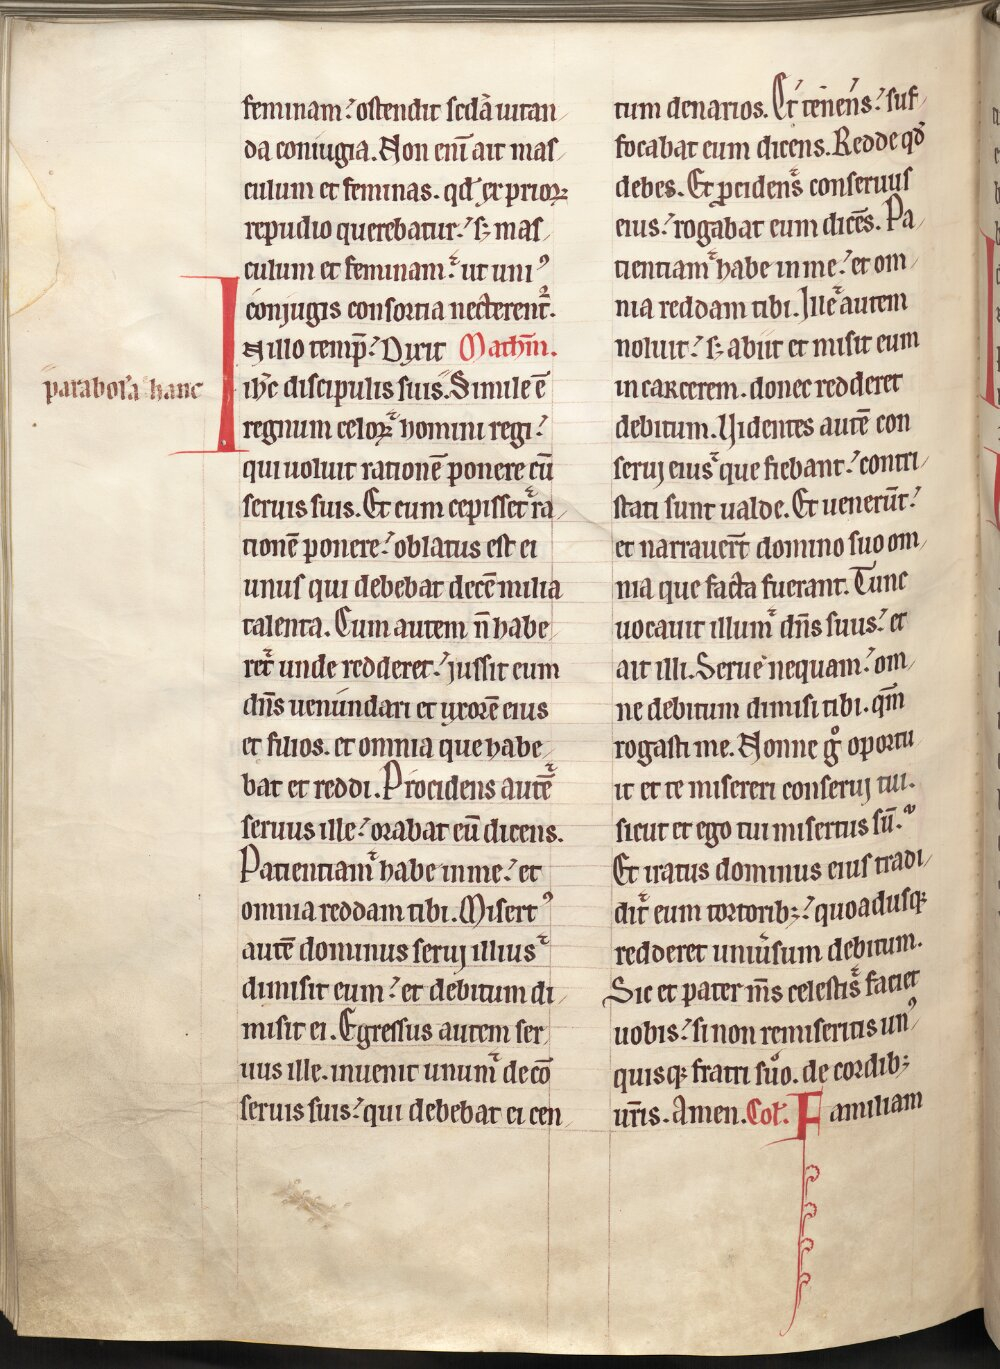 feminam? ostendit scd̄a uitan
da coniugia. Non eni᷒ ait mas
culum et feminas. qd̄ ex prioꝝ
repudio querebatur? sꝫ mas
culum et feminam? ut uniꝰ
conjugis consortia necterent̄.
parabolā hanc
In illo temp̄? Dixit Mathm̄.
ih̄c discipulis suis. Simile ē
regnum celoꝝ homini regi?
qui uoluit rationē ponere cū
seruis suis. Et cum cepisset ra
tionē ponere? oblatus est ei
unus qui debebat decē milia
talenta. Cum autem n̄ habe
ret unde redderet? jussit eum
dn̄s uenundari et uxorē eius
et filios. et omnia que habe
bat et reddi. Procidens autē
seruus ille? orabat eū dicens.
Patientiam habe in me? et
omnia reddam tibi. Misertꝰ
autē dominus seruj illius
dimisit eum? et debitum di
misit ei. Egressus autem ser
uus ille. inuenit unum de cō
seruis suis? qui debebat ei cen
tum denarios. Et tenens? suf
focabat eum dicens. Redde qd̄
debes. Et ꝓcidens conseruus
eius? rogabat eum dicēs. Pa
tientiam habe in me? et om
nia reddam tibi. Ille autem
noluit? sꝫ abiit et misit eum
in carcerem. donec redderet
debitum. Uidentes autē con
seruj eius que fiebant? contri
stati sunt ualde. Et uenerūt?
et narrauerr̄t domino suo om
nia que facta fuerant. Tunc
uocauit illum dn̄s suus? et
ait illi. Serue nequam? om
ne debitum dimisi tibi. qm̄
rogasti me. Nonne gͦ oportu
it et te misereri conseruj tui.
sicut et ego tui misertus sū.
Et iratus dominus eius tradi
dit eum tortoribꝫ? quoadusqꝫ
redderet uniūsum debitum.
Sic et pater m̄s celestis faciet
uobis? si non remiseritis unꝰ
quisqꝫ fratri suo. de cordibꝫ
ur̄is. Amen. Col̄. Familiam